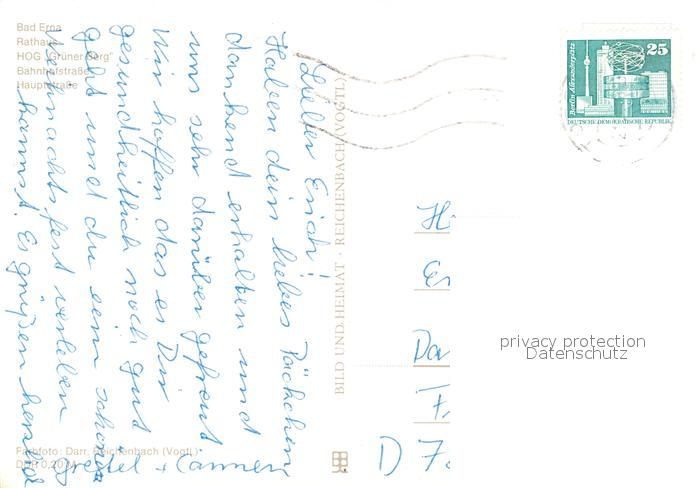 Bad Erna
Rathaus
HOG "Grüner Berg"
Bahnhofstraße
Hauptstraße
Lieber Erich!
Haben dein liebes Päckchen
dankend erhalten und
uns sehr darüber gefreut
Wir hoffen das es Dir
gesundheitlich noch gut
geht und du ein schönes
Weihnachtsfest verleben
kannst. Es grüßen herzlich
Gretel + Carmen
Farbfoto: Darr, Reichenbach (Vogtl.)
BILD UND HEIMAT · REICHENBACH (VOGTL)
25
Berlin, Alexanderplatz
DEUTSCHE DEMOKRATISCHE REPUBLIK
H
Er
Da
D 7
privacy protection
Datenschutz